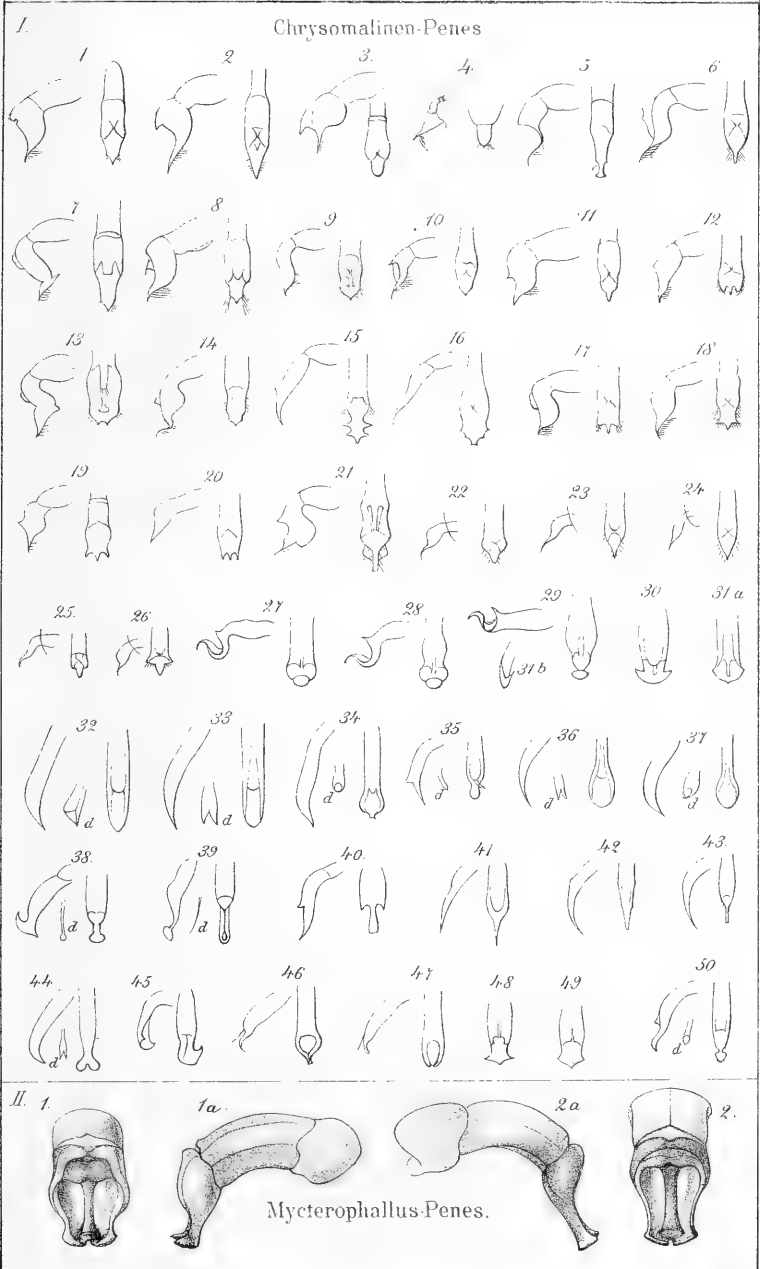 I.
Chrysomalinen-Penes
1 2 3. 4. 5 6
7 8 9 10 11 12
13 14 15 16 17 18
19 20 21 22 23 24
25. 26 27 28 29 30 31a
31b
32 33 34 35 36 37
d d d d d d
38. 39 40. 41 42 43.
d d
44 45 46 47 48 49 50
d d
II. 1. 1a. 2a 2.
Mycterophallus-Penes.